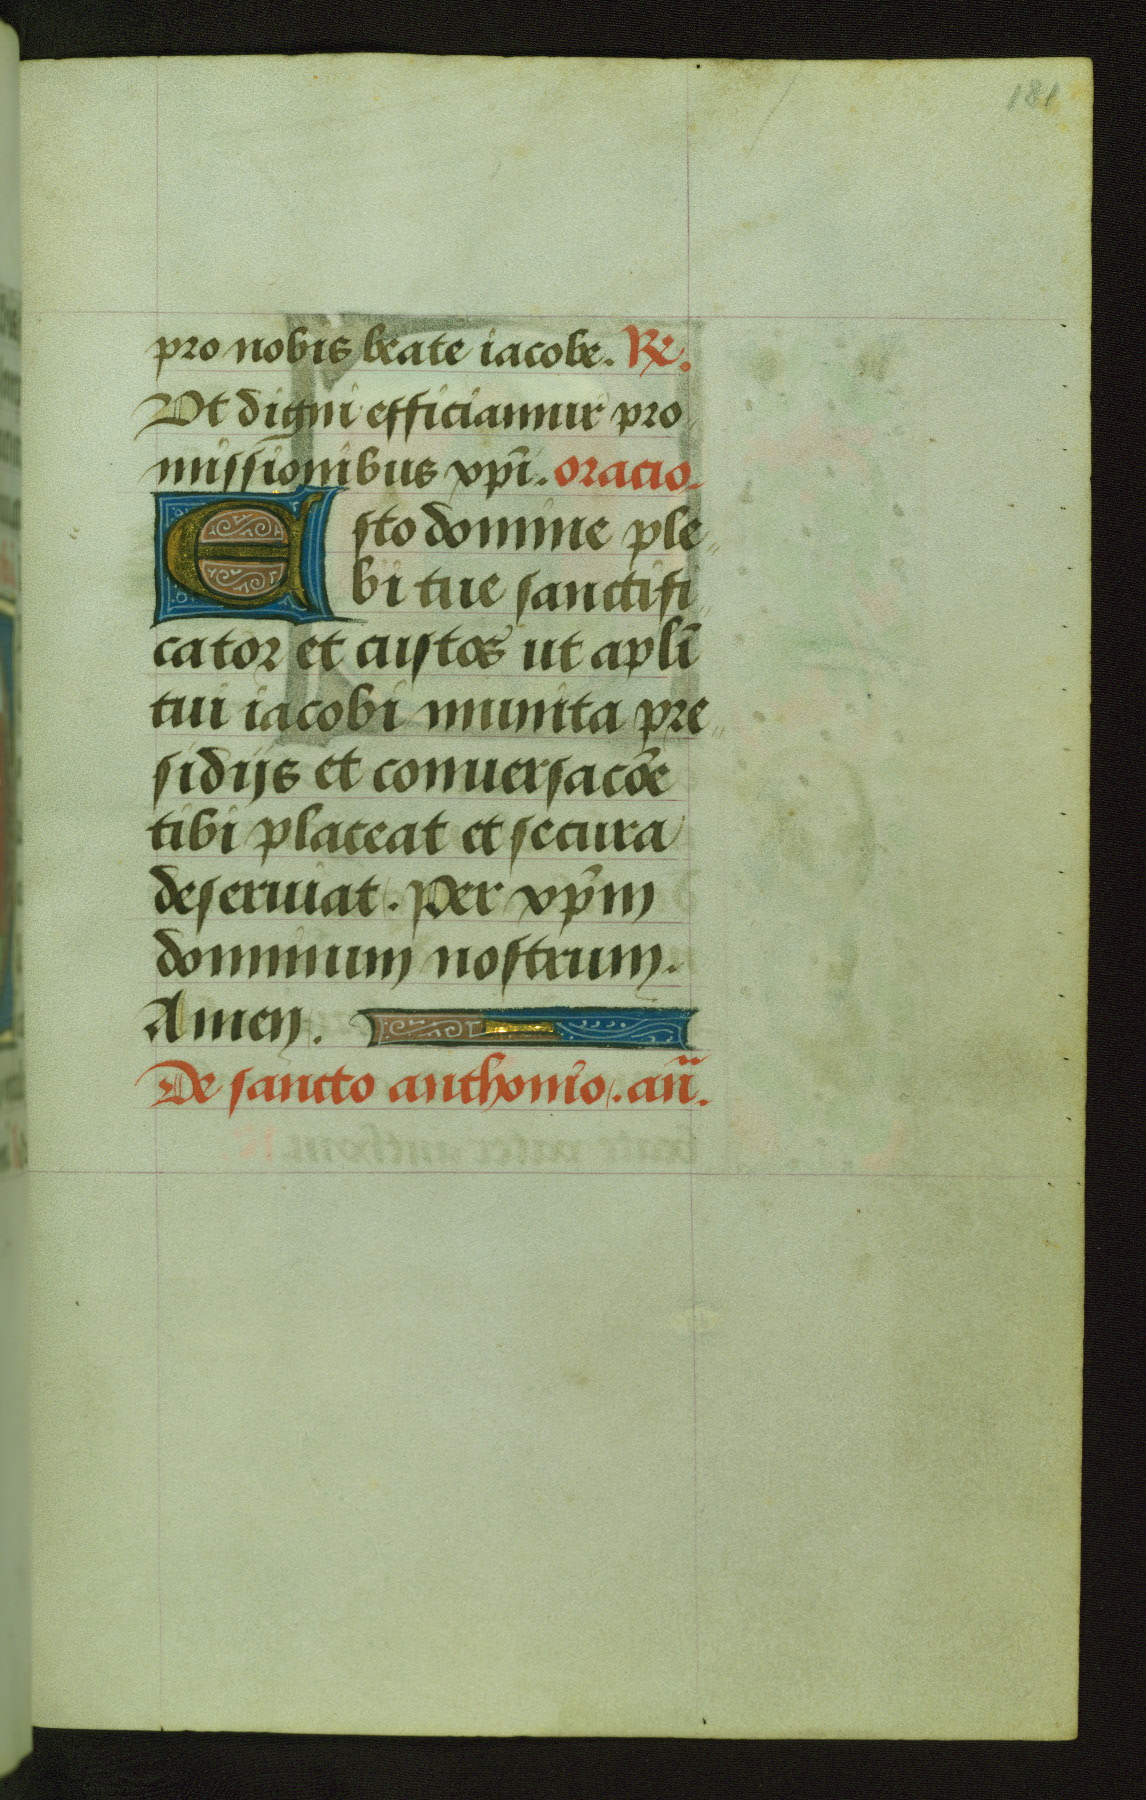 181
pro nobis beate iacobe. Re.
Ut digni efficiamur pro
missionibus xpī. oracio.
Esto domine ple„
bi tue sanctifi„
cator et custos ut aplī
tui iacobi munita pre„
sidijs et conuersacōe
tibi placeat et secura
deseruiat. Per xpm̄
dominum nostrum.
Amen.
De sancto anthonio. añ.